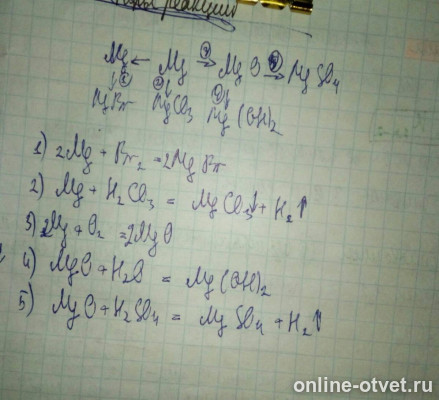 реакций
Mg ← Mg ③→ MgO ⑤→ MgSO4
↓① ②↓ ④↓
MgBr MgCO3 Mg(OH)2
1) 2Mg + Br2 = 2MgBr
2) Mg + H2CO3 = MgCO3↓ + H2↑
3) 2Mg + O2 = 2MgO
4) MgO + H2O = Mg(OH)2
5) MgO + H2SO4 = MgSO4 + H2↑
online-otvet.ru